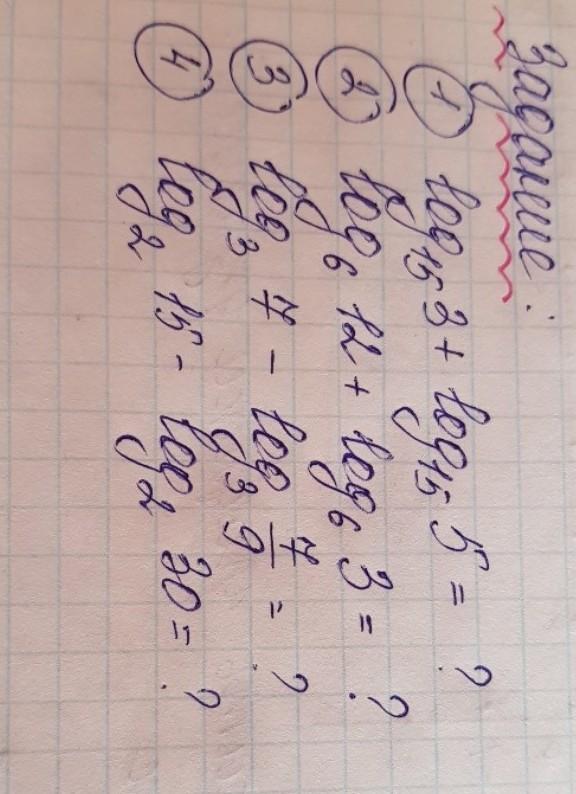 Задание:
1 log₁₅ 3 + log₁₅ 5 = ?
2 log₆ 12 + log₆ 3 = ?
3 log₃ 7 - log₃ 7/9 = ?
4 log₂ 15 - log₂ 30 = ?